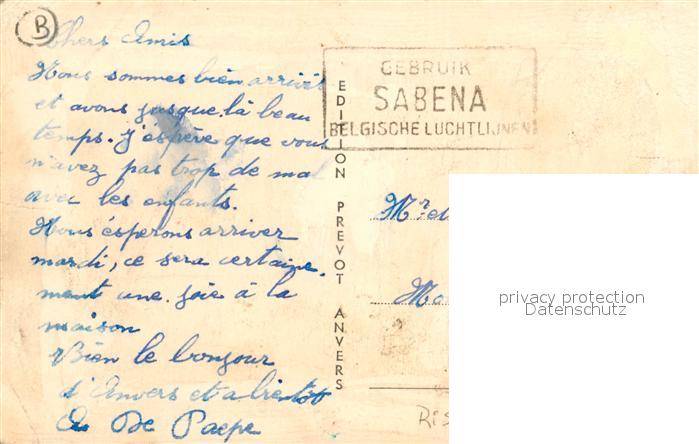 B
Chers Amis
Nous sommes bien arrivés
et avons jusque là beau
temps. J'espère que vous
n'avez pas trop de mal
avec les enfants.
Nous ésperons arriver
mardi, ce sera certaine-
ment une joie à la
maison
Bien le bonjour
d'Anvers et a bientot
De Paepe
EDITION PREVOT ANVERS
GEBRUIK
SABENA
BELGISCHE LUCHTLIJNEN
Mr et
privacy protection
Datenschutz